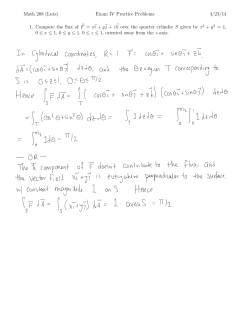 Math 208 (Lutz) Exam IV Practice Problems 4/23/14
1. Compute the flux of F⃗ = xi⃗ + yj⃗ + zk⃗ over the quarter cylinder S given by x² + y² = 1,
0 ≤ x ≤ 1, 0 ≤ y ≤ 1, 0 ≤ z ≤ 1, oriented away from the z-axis.
In Cylindrical coordinates, R = 1 F⃗: cosθi⃗ + sinθj⃗ + zk⃗
dA⃗ = (cosθi⃗ + sinθj⃗) dzdθ, and the θz-region T corresponding to
S is 0≤z≤1, 0≤θ≤π/2
Hence ∫_S F⃗·dA⃗ = ∫_T (cosθi⃗ + sinθj⃗ + zk⃗)·(cosθi⃗ + sinθj⃗) dzdθ
= ∫_T (cos²θ + sin²θ) dzdθ = ∫_T 1 dzdθ = ∫₀^{π/2} ∫₀¹ 1 dzdθ
= ∫₀^{π/2} 1 dθ = π/2
— OR —
The k⃗ component of F⃗ doesn't contribute to the flux, and
the vector field xi⃗ + yj⃗ is everywhere perpendicular to the surface
w/ constant magnitude 1 on S. Hence
∫_S F⃗·dA⃗ = ∫_S (xi⃗ + yj⃗)·dA⃗ = 1· area S = π/2